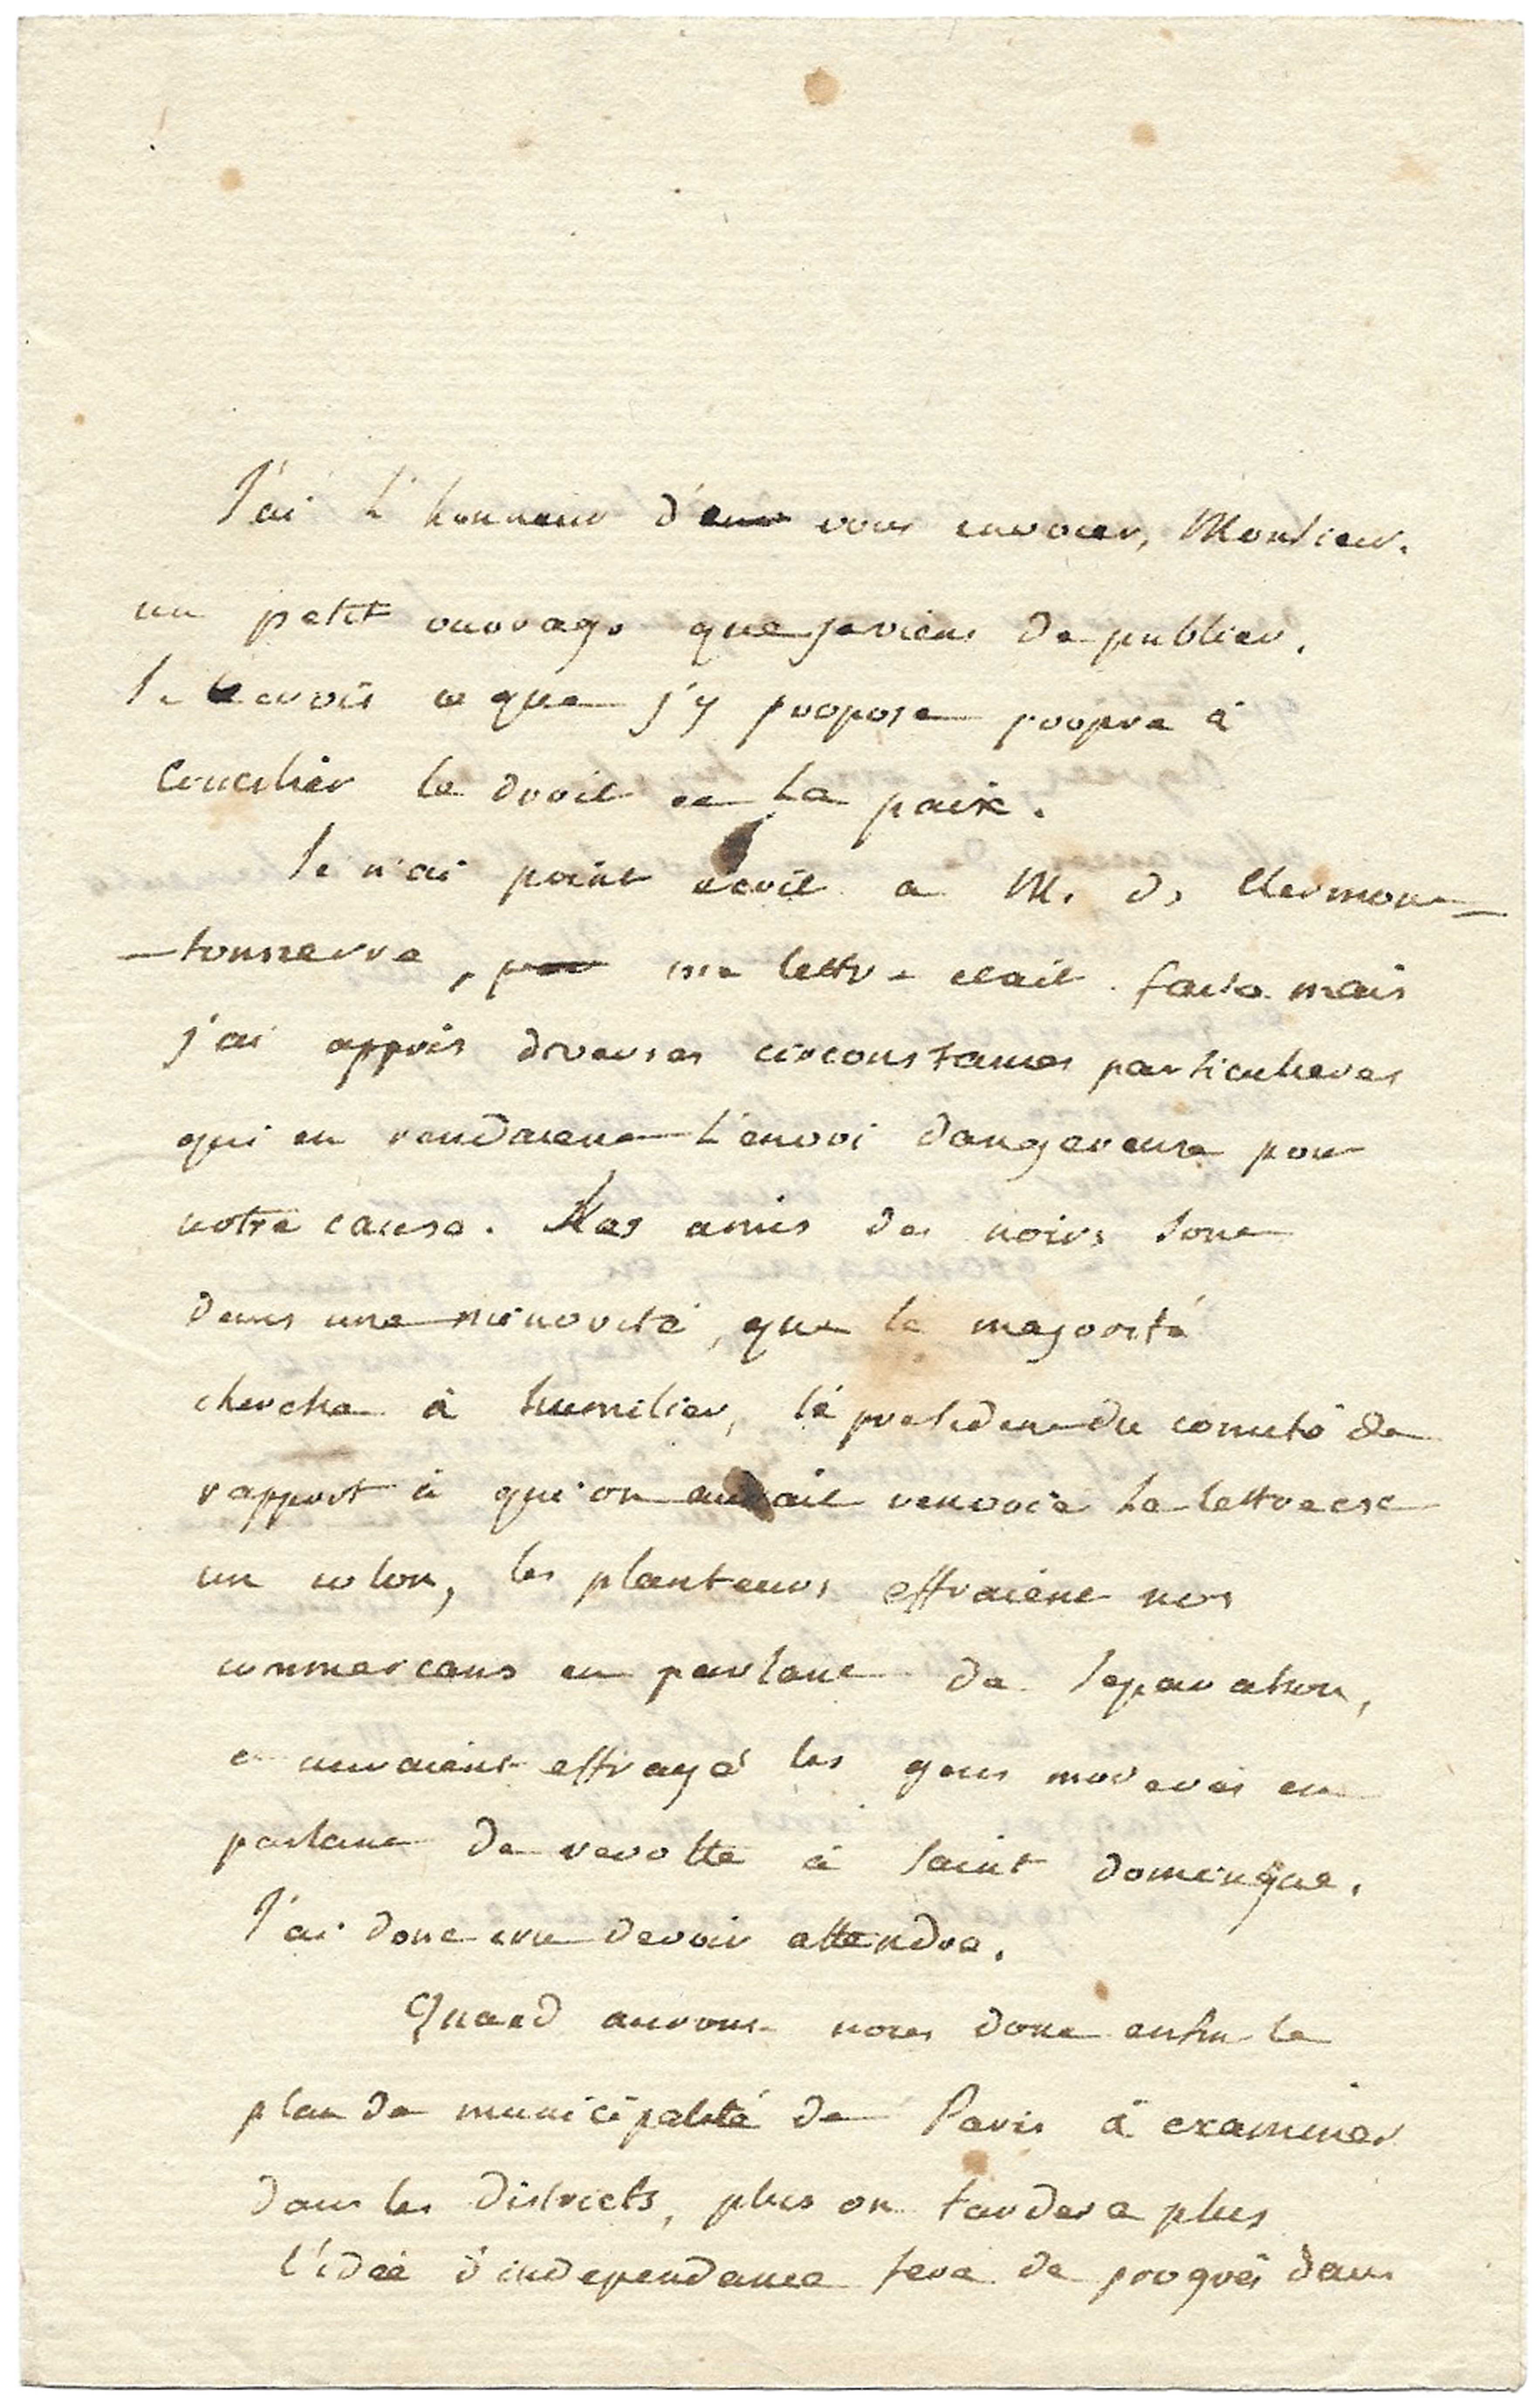 J'ai L'honneur d'en vous envoier, Monsieur.
un petit ouvrage que je viens de publier.
Je crois ce que j'y propose propre à
concilier le droit et La paix.
Je n'ai point écrit a M. de Clermont
-tonnerre, pour ma lettre etait faite mais
j'ai appris diverses circonstances particulieres
qui en rendaient L'envoi dangereuse pour
notre cause. Les amis des noirs sont
dans une minorité, que la majorité
cherche à humilier, le president du comité de
rapport à qui on aurait renvoié La lettre est
un colon, les planteurs effraient nos
commercans en parlant de separation,
et auraient effrayé les gens moderés en
parlant de revolte à saint domingue.
J'ai donc cru devoir attendre.
Quand aurons nous donc enfin le
plan de municipalité de Paris à examiner
dans les districts, plus on tardera plus
l'idée d'independance fera de progrès dans